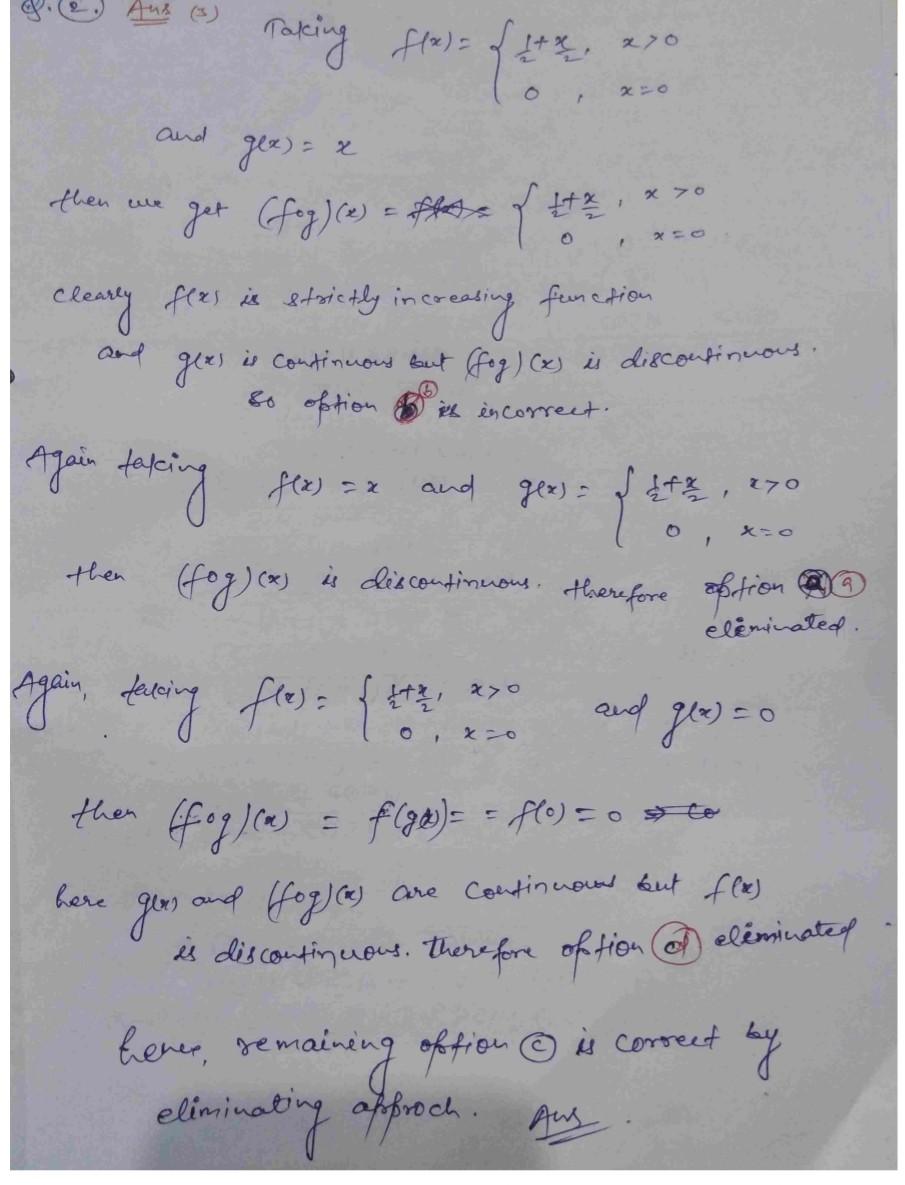 Q. 2. Ans (3)
Taking f(x) = { 1/2 + x/2, x > 0
0 , x = 0
and g(x) = x
then we get (fog)(x) = { 1/2 + x/2 , x > 0
0 , x = 0
clearly f(x) is strictly increasing function
and g(x) is continuous but (fog)(x) is discontinuous.
So option b is incorrect.
Again taking f(x) = x and g(x) = { 1/2 + x/2 , x > 0
0 , x = 0
then (fog)(x) is discontinuous. therefore option a
eliminated.
Again, taking f(x) = { 1/2 + x/2, x > 0
0 , x = 0
and g(x) = 0
then (fog)(x) = f(g(x)) = = f(0) = 0
here g(x) and (fog)(x) are continuous but f(x)
is discontinuous. Therefore option d eliminated.
hence, remaining option c is correct by
eliminating approch. Ans.